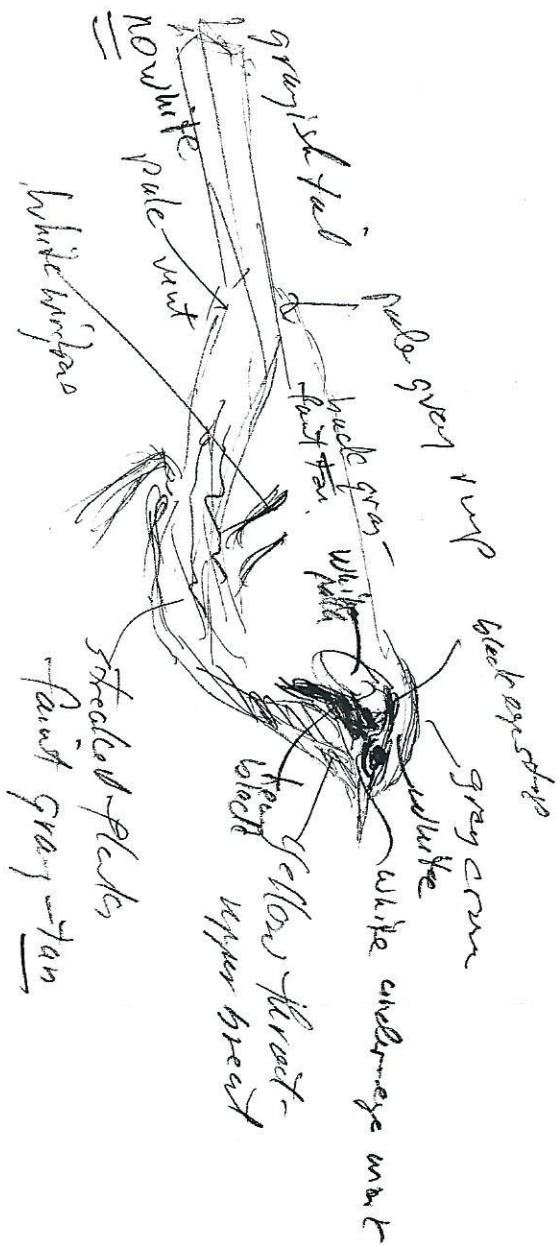 grayish tail
no white
pale vent
white wingbars
pale gray rump
back gray -
faint tan
white
patch
black eyestrip
gray crown
white
white undereye mark
black
yellow throat -
upper breast
streaked flanks
faint gray - tan